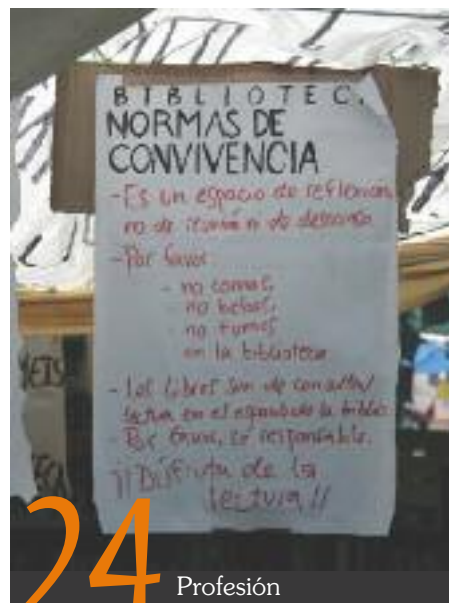 BIBLIOTEC.
NORMAS DE
CONVIVENCIA
- Es un espacio de reflexión
no de reunión ni de descanso
- Por favor:
- no comas,
- no bebas,
- no fumes
en la biblioteca
- Los libros son de consulta/
lectura en el espacio de la biblio
- Por favor, sé responsable.
¡¡Disfruta de la
lectura!!
24
Profesión